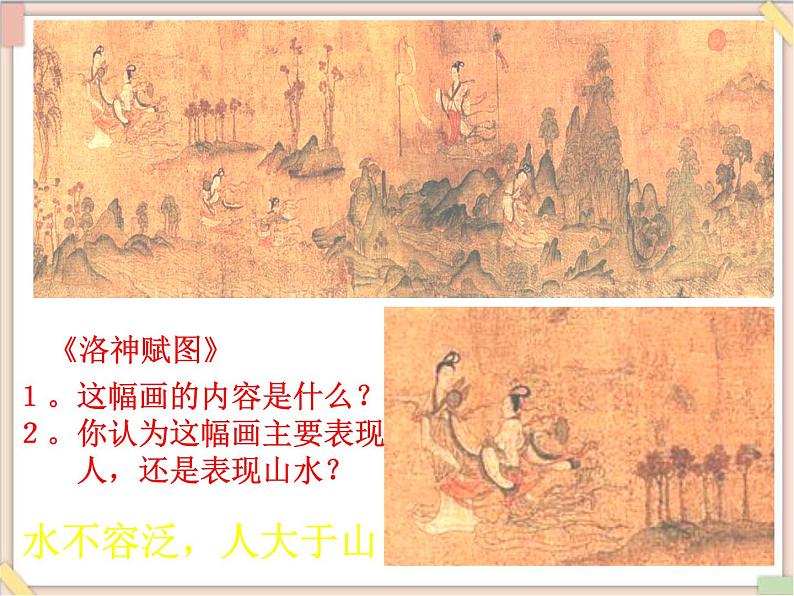 《洛神赋图》
１。这幅画的内容是什么？
２。你认为这幅画主要表现
人，还是表现山水？
水不容泛，人大于山